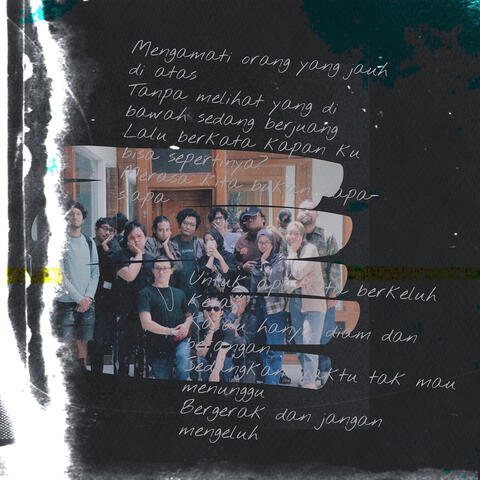 Mengamati orang yang jauh
di atas
Tanpa melihat yang di
bawah sedang berjuang
Lalu berkata kapan ku
bisa sepertinya?
Merasa kita bukan apa-
apa
Untuk berkeluh
hanya diam dan
tak mau
menunggu
Bergerak dan jangan
mengeluh